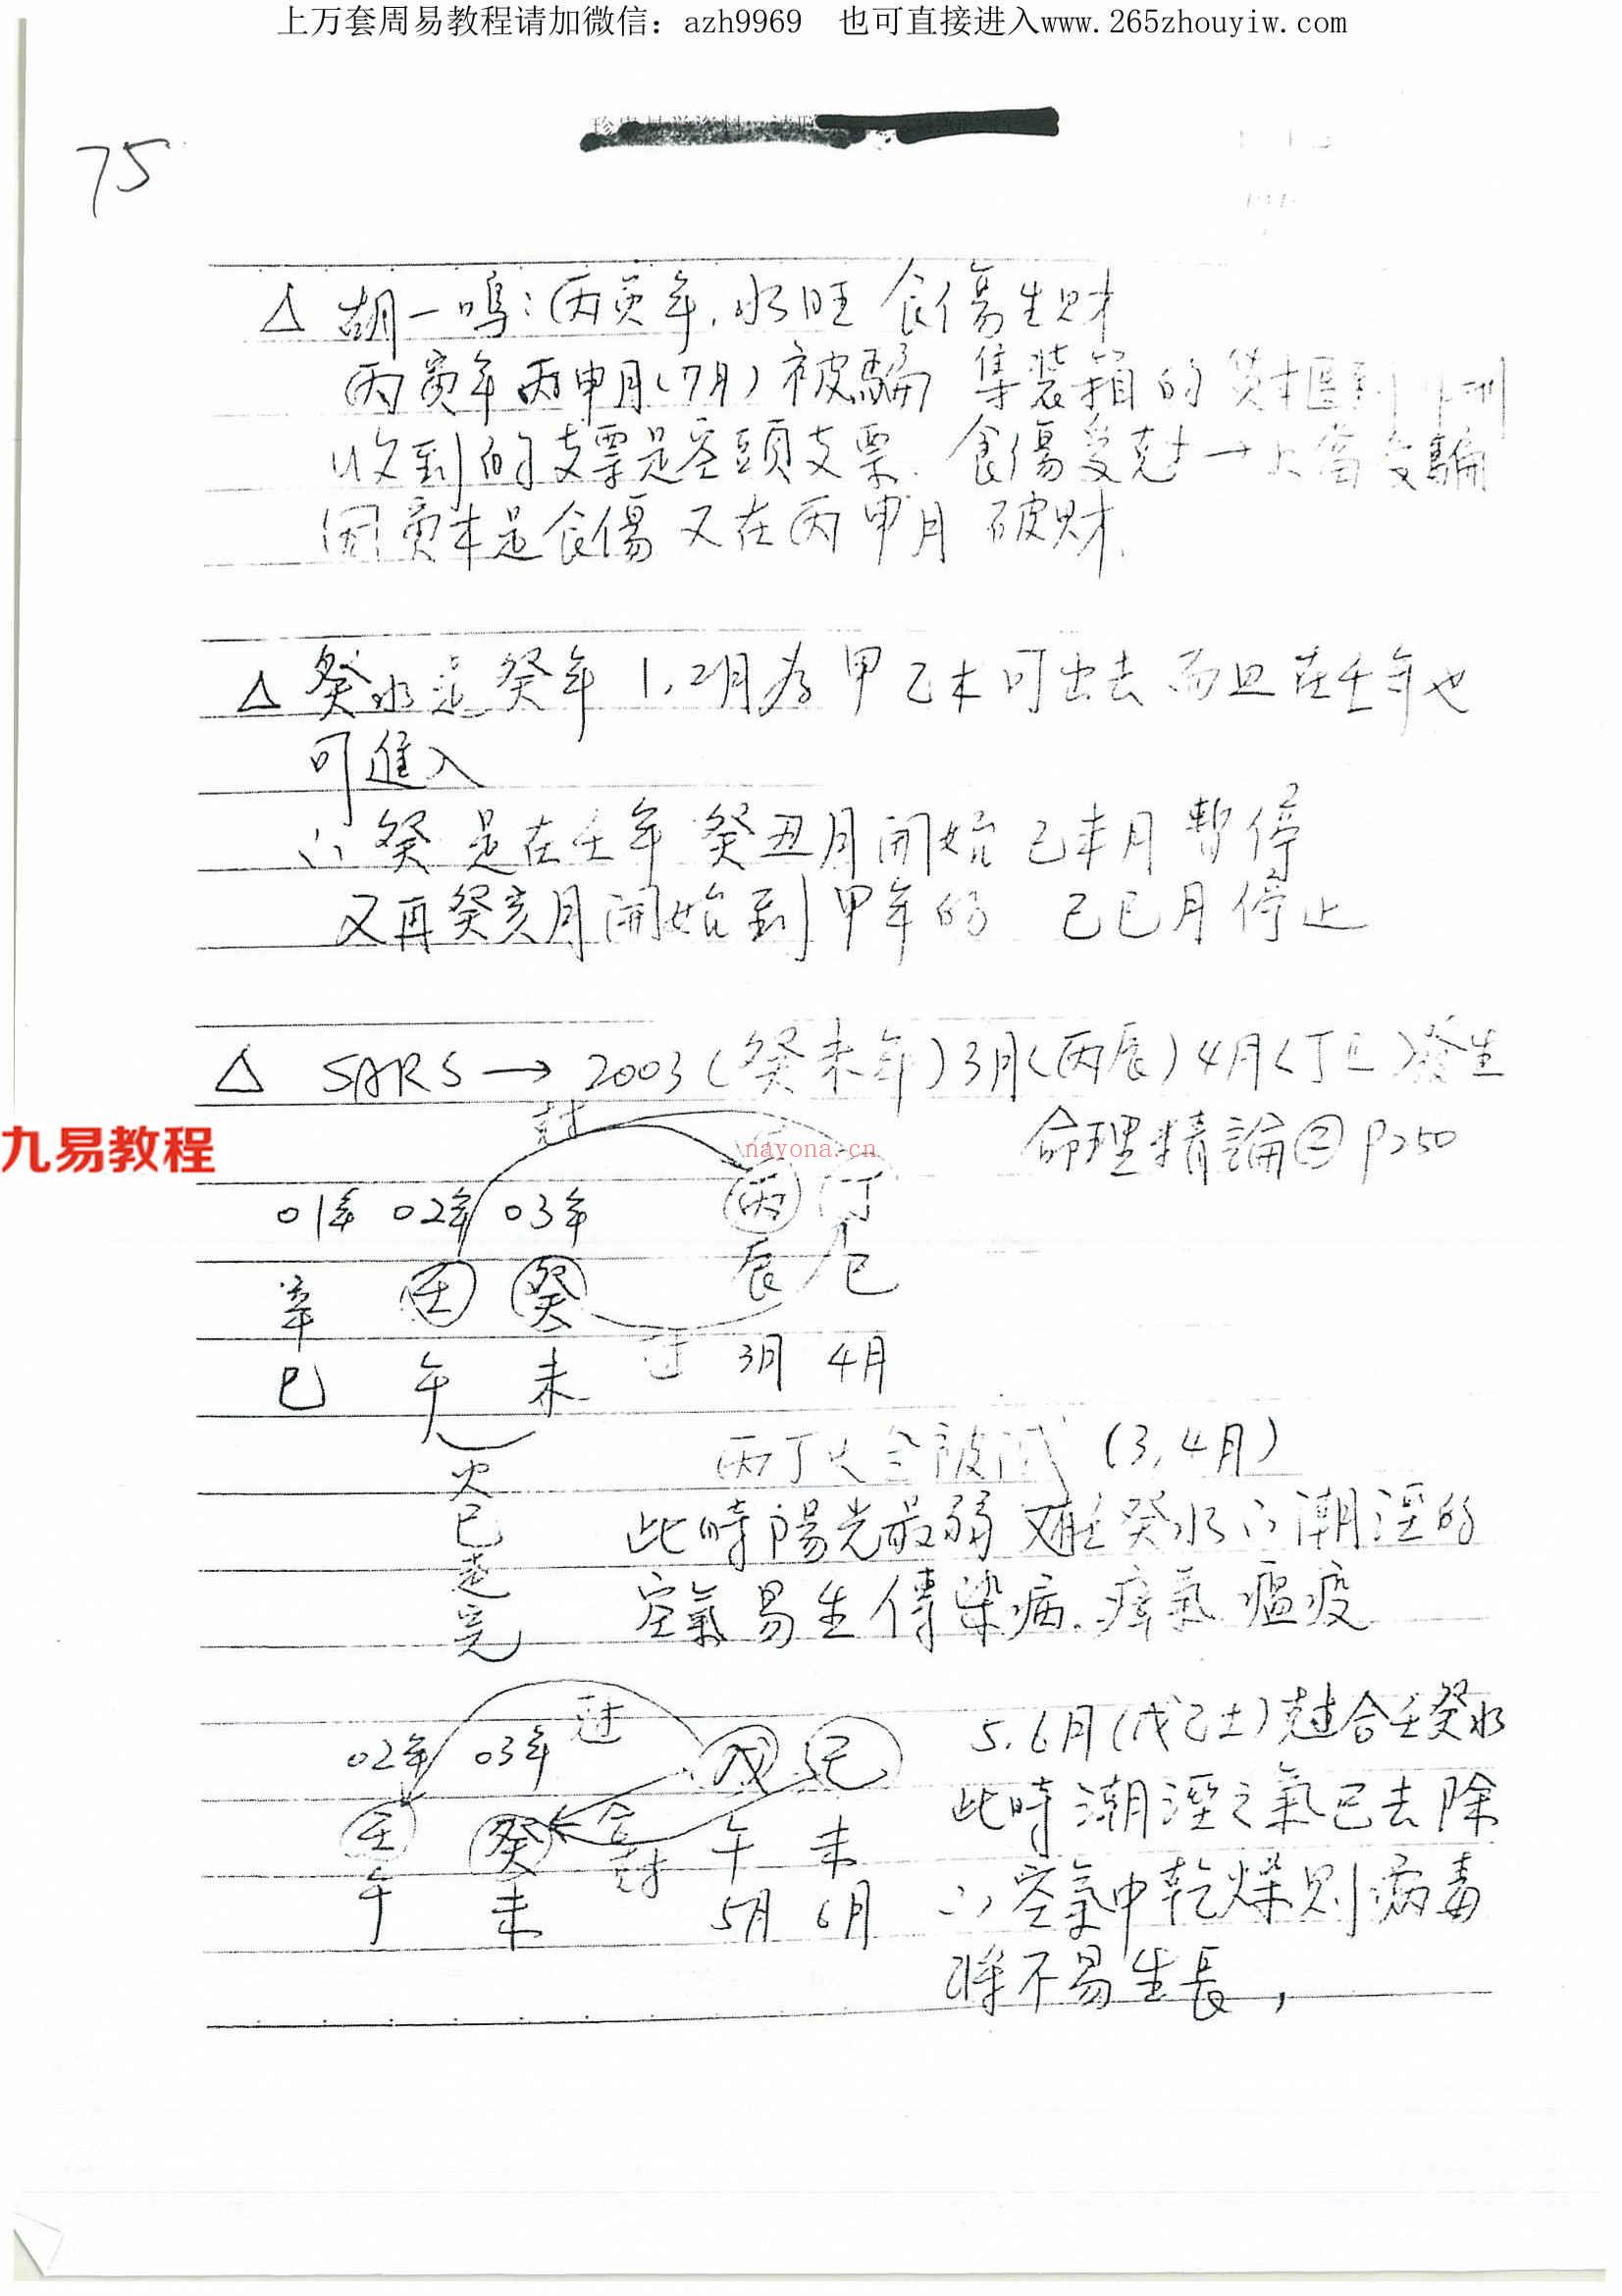 上万套周易教程请加微信：azh9969 也可直接进入www.265zhouyiw.com
75
△ 胡一鳴：丙寅年，水旺 食傷生財
丙寅年丙申月(7月)被騙 集裝箱的
收到的支票是空頭支票. 食傷受剋→上當受騙
因寅本是食傷 又在丙申月 破財.
△ 癸水是癸年 1,2月為甲乙木可出去 而且在壬年也
可進入
∴ 癸是在壬年 癸丑月開始 己未月暫停
又再癸亥月開始到甲年的 己巳月停止
△ SARS → 2003(癸未年)3月(丙辰)4月(丁巳)發生
命理精論② P250
九易教程
nayona.cn
01年 02年 03年
丙 丁
辰 巳
辛 壬 癸
巳 午 未
3月 4月
火已走完
丙丁火全被 (3,4月)
此時陽光最弱 又在壬癸水∴潮溼的
空氣易生傳染病.瘴氣 瘟疫
02年 03年 戊 己
壬 癸 合 午 未
午 未 5月 6月
5.6月(戊己土)剋合壬癸水
此時潮溼之氣已去除
∴空氣中乾燥則病毒
將不易生長,